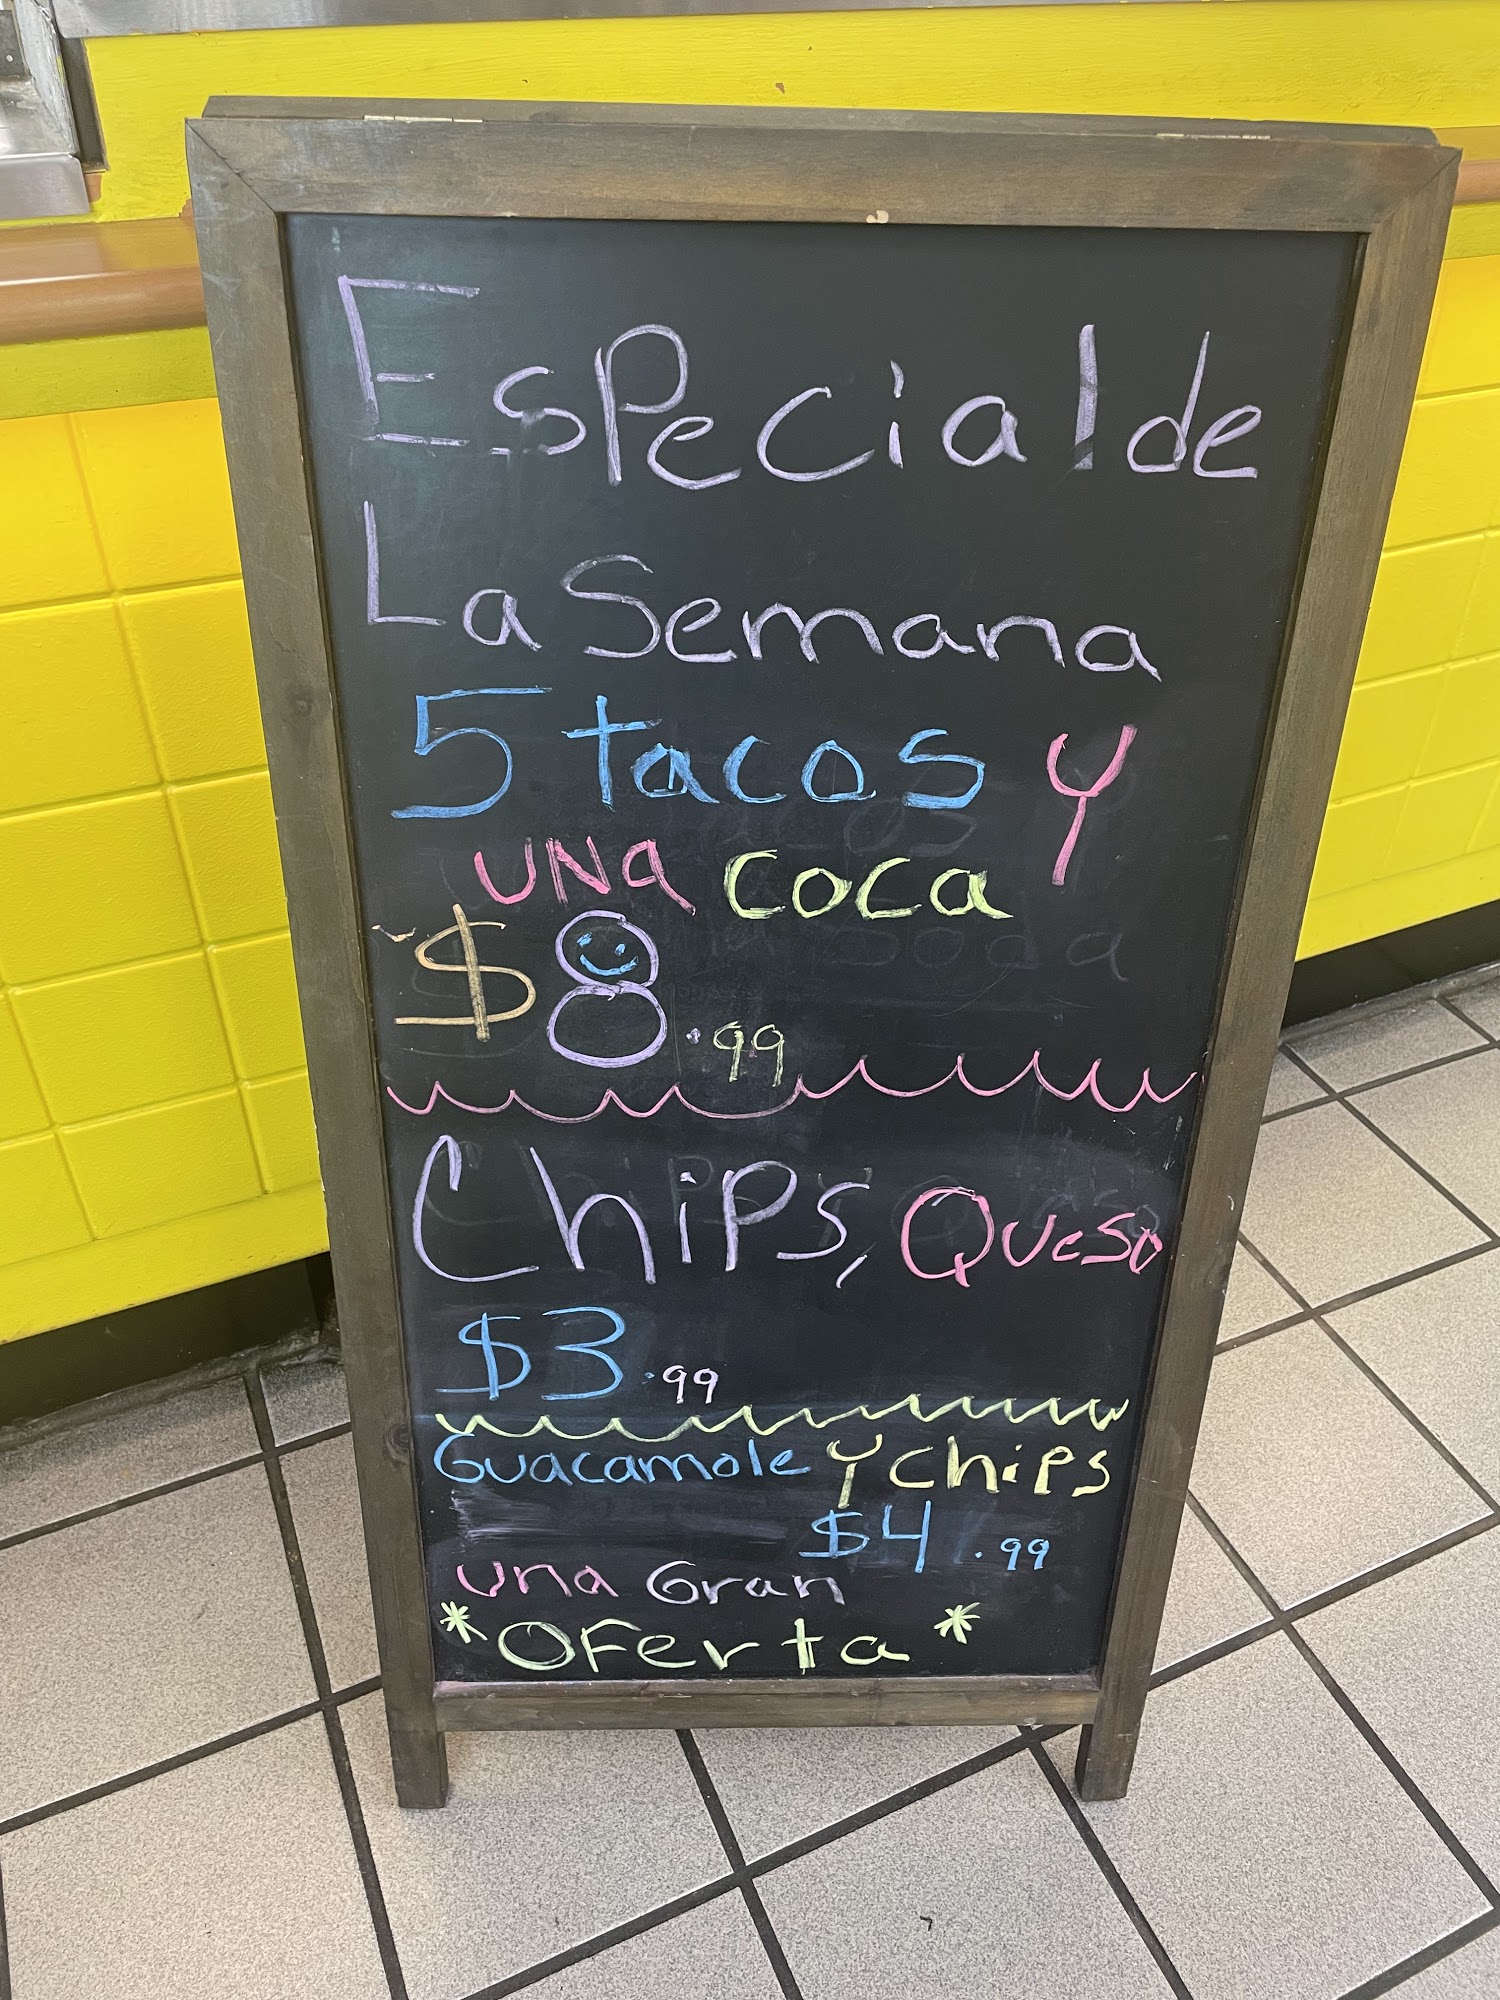 Especial de
La Semana
5 tacos y
una coca
$8.99
Chips, Queso
$3.99
Guacamole y chips
$4.99
una Gran
*Oferta*